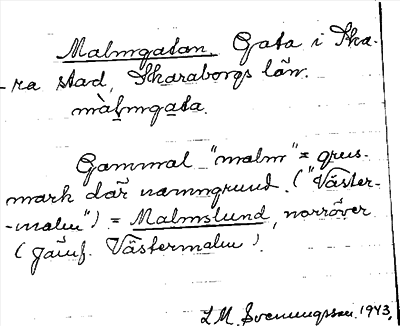 Malmgatan. Gata i Ska-
ra stad, Skaraborgs län.
màlmgata.
Gammal "malm" = grus-
mark där namngrund. ("Väster-
-malm") = Malmslund, norröver
(Jämf. Västermalm).
L.M. Svenungsson 1943.